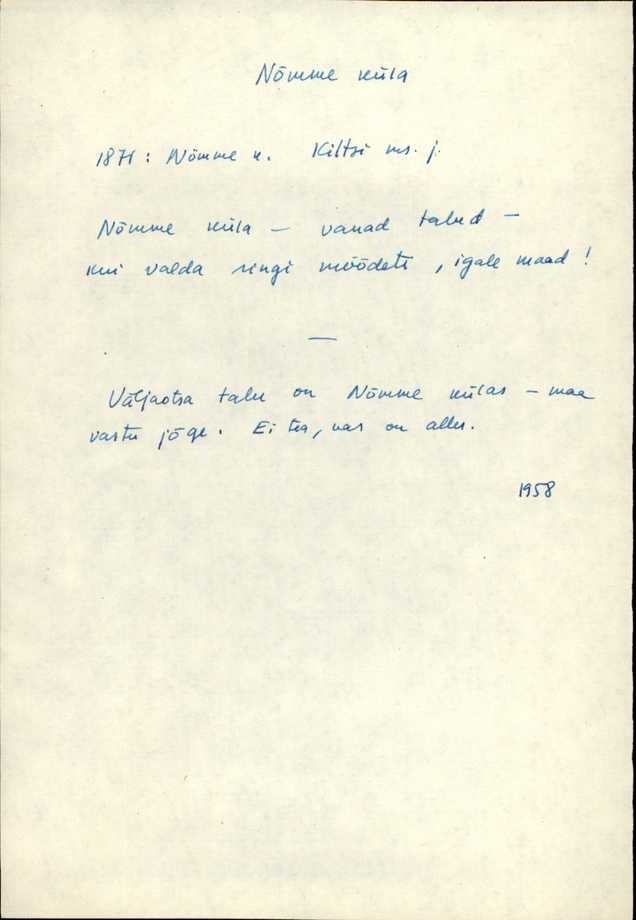 Nõmme küla
1871: Nõmme k. Kiltsi ms. j.
Nõmme küla – vanad talud –
kui valda ringi mõõdeti, igale maad!
—
Väljaotsa talu on Nõmme külas – maa
vastu jõge. Ei tea, kas on alles.
1958